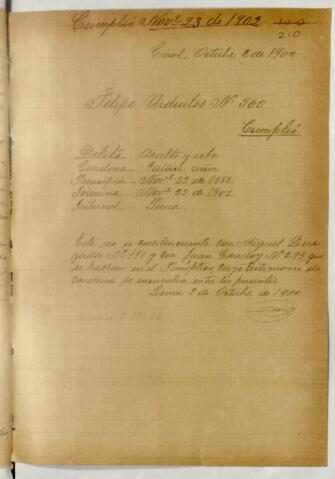 Cumplió Nov.e 23 de 1902
210
Octubre 2 de 1900
Felipe Urdiales Nº 300
Cumplió
Delito Asalto y robo
Condena años
Principia - Nov.e 23 de 1888.
Termina - Nov.e 23 de 1902.
Tribunal - Puno
Este reo es con Miguel
Nº 191 y con Juan Nº 299, que
se hallan en el Panóptico cuyo testimonio de
condena se encuentra entre los presentes
Lima 2 de Octubre de 1900